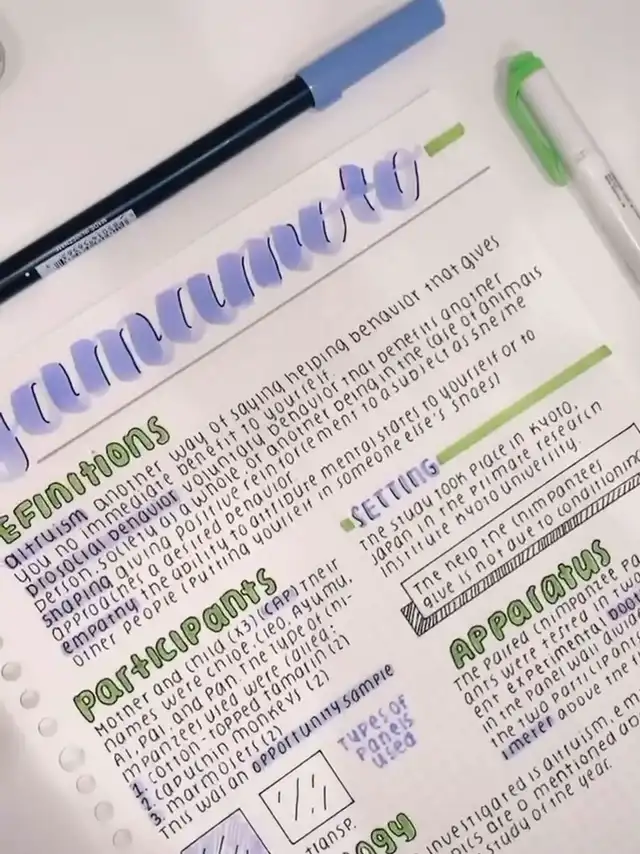 yamamoto
EFINITIONS
altruism another way of saying helping behavior that gives
you no immediate benefit to yourself.
prosocial behavior voluntary behavior that benefits another
person, society as a whole or another being in the case of animals
shaping giving positive reinforcement to a subject as she/he
approaches a desired behavior
empathy the ability to attribute mental states to yourself or to
other people (putting yourself in someone else's shoes)
SETTING
The study took place in Kyoto,
Japan in the Primate Research
Institute Kyoto University.
The help the chimpanzees
give is not due to conditioning
participants
Mother and child (x3) (CAP) Their
names were Chloe, Cleo, Ayumu,
Ai, Pal, and Pan. The type of chi-
mpanzees used were called:
1. cotton-topped tamarin (2)
2. capuchin monkeys (2)
3. marmosets (2)
This was an opportunity sample
Types of
panels
used
transp.
Apparatus
The paired chimpanzee pa
ants were tested in two
ent experimental boo
in the panel wall divid
the two participants
1 meter above the
ogy
investigated is altruism, em
pics are a mentioned
study of the year.